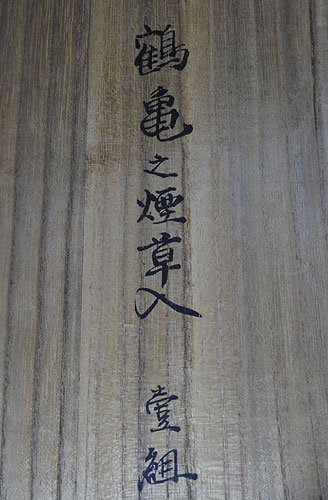 鶴亀之煙草入 壹組